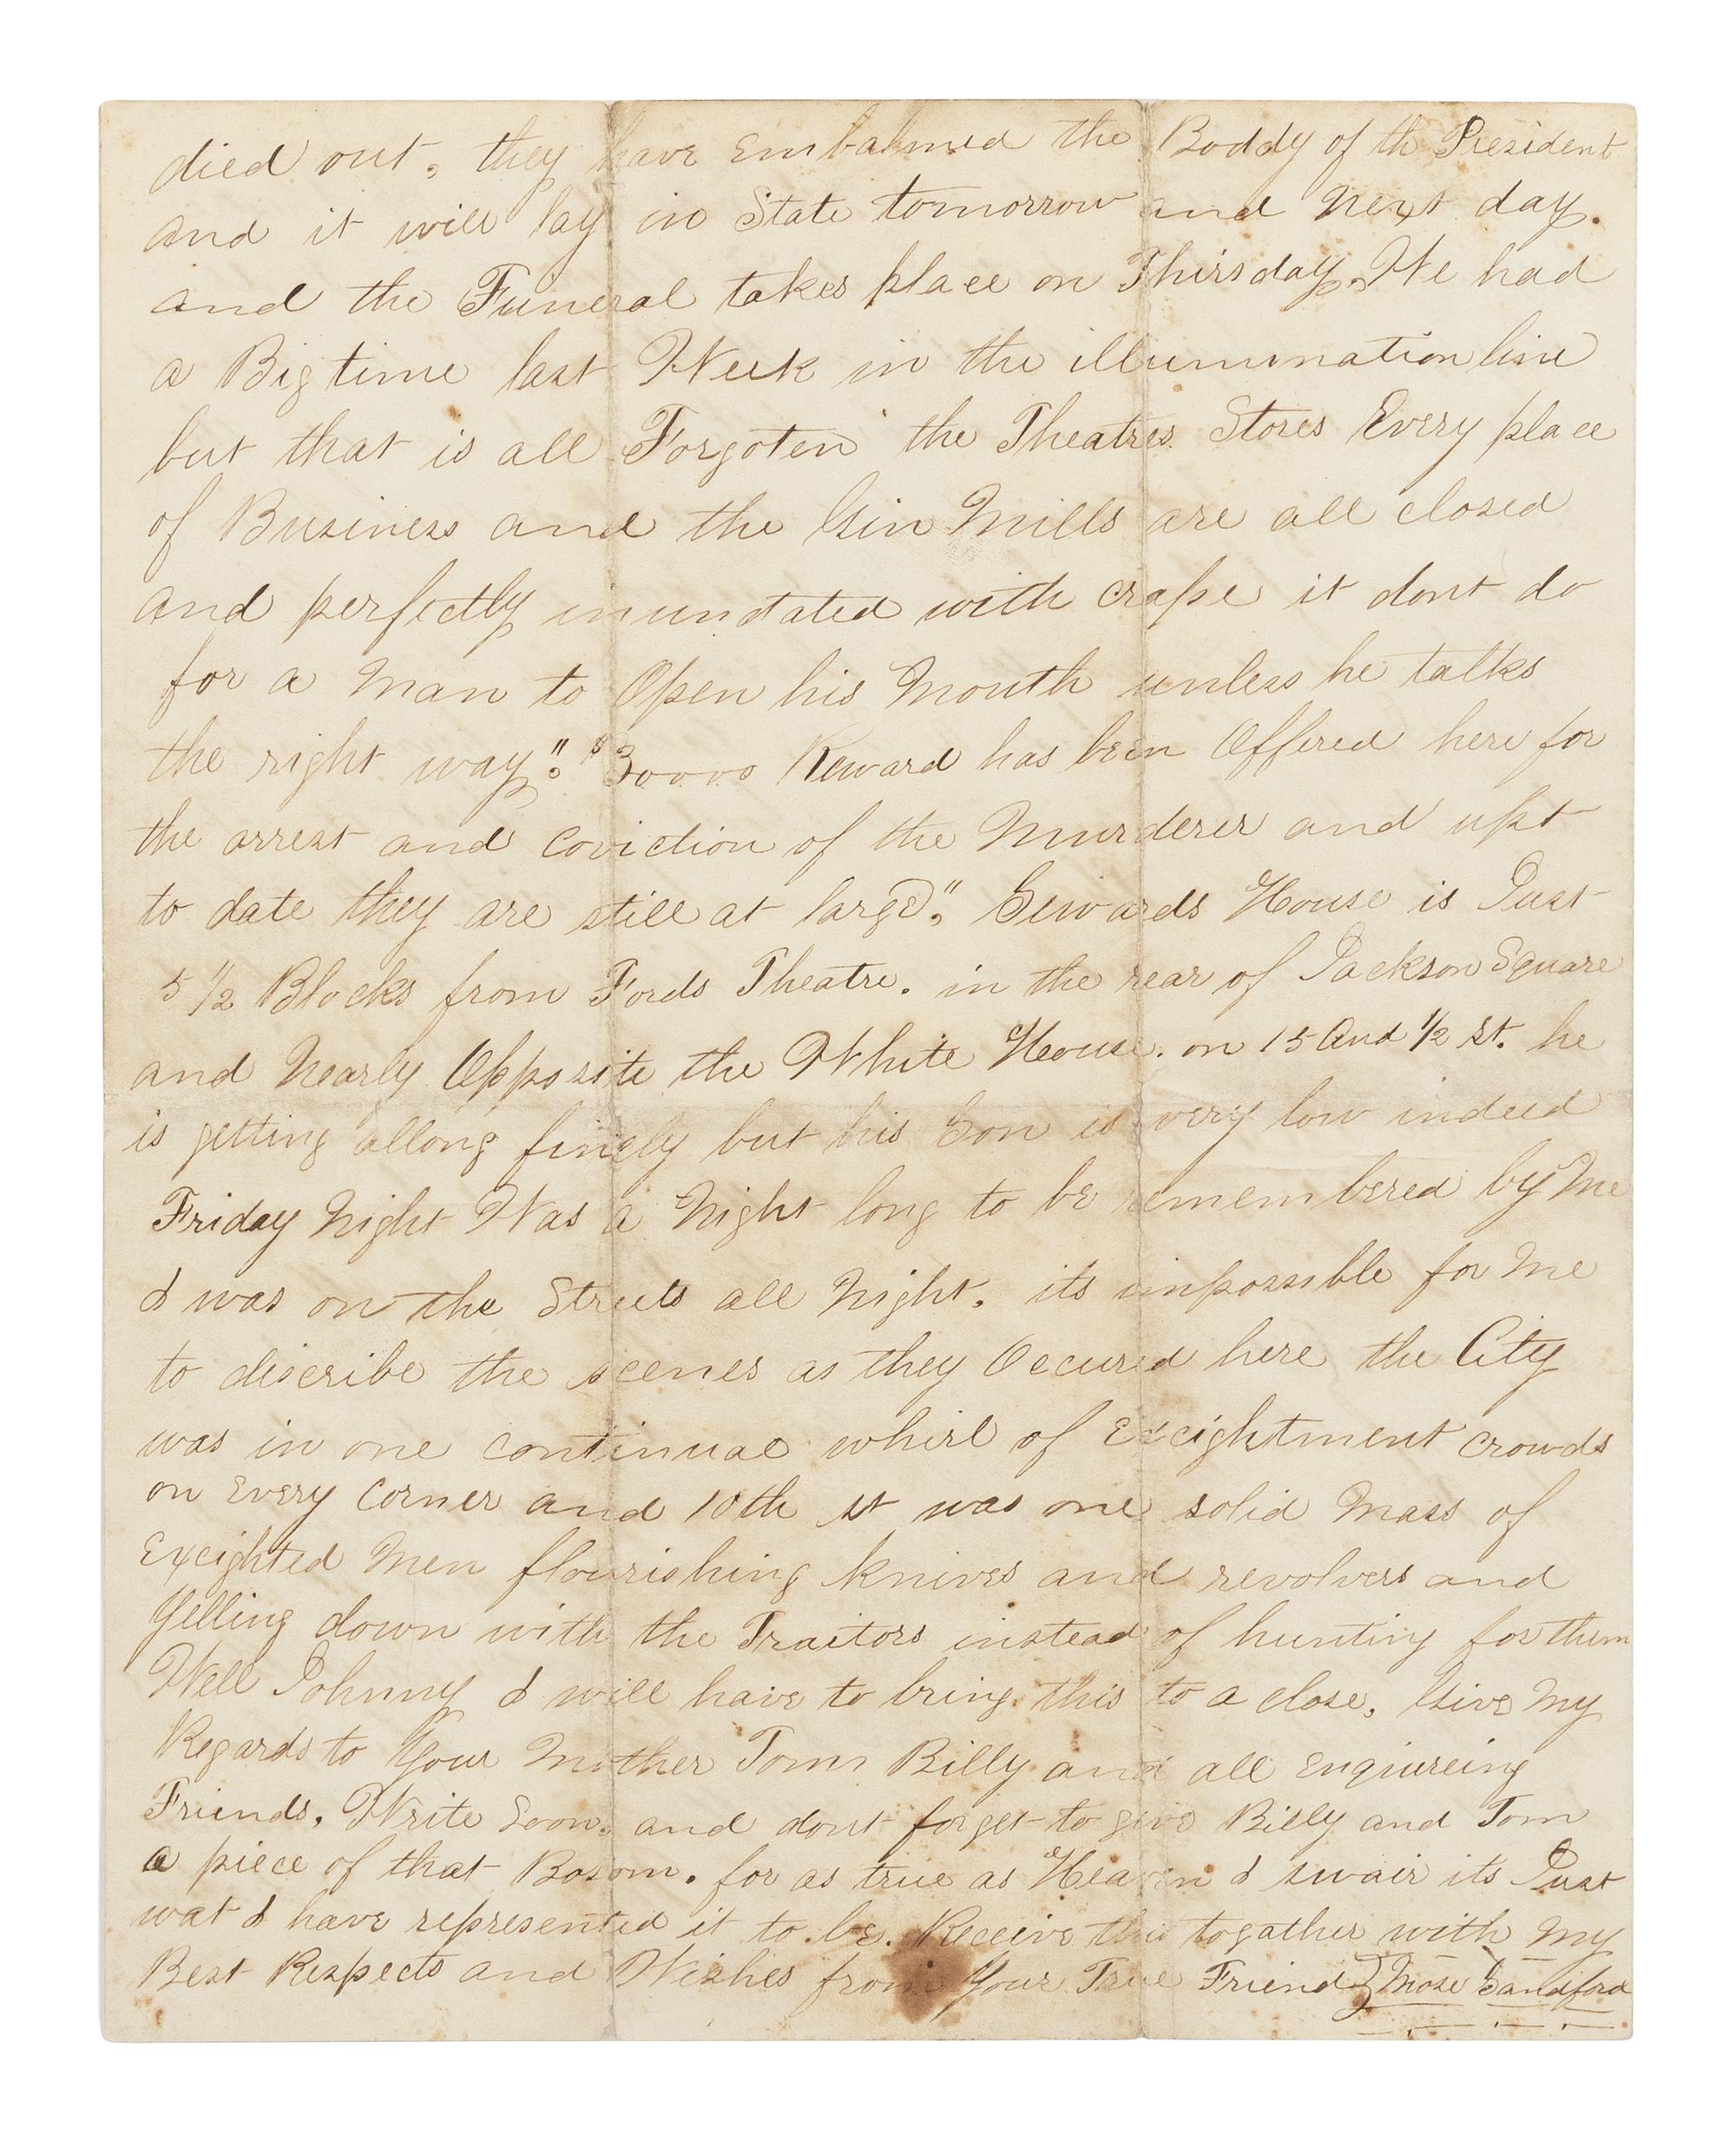 died out, they have Embalmed the Boddy of th President
and it will lay in State tomorrow and next day.
and the Funeral takes place on Thirsday. We had
a Big time last Week in the illumination line
but that is all Forgoten the Theatres Stores Every place
of Business and the Gin Mills are all closed
and perfectly inundated with crape it dont do
for a Man to Open his Mouth unless he talks
the right way." $30000 Reward has been Offered here for
the arrest and coviction of the Murderer and upt
to date they are still at large," Sewards House is Just
5 1/2 Blocks from Fords Theatre. in the rear of Jackson Square
and Nearly Opposite the White House. on 15 And 1/2 St. he
is getting allong finely but his Son is very low indeed
Friday Night Was a Night long to be remembered by Me
I was on the Streets all Night. its impossible for Me
to discribe the scenes as they Occured here the City
was in one continual whirl of Exceightment crowds
on Every Corner and 10th st was one solid Mass of
Exceighted Men flourishing knives and revolvers and
Yelling down with the Traitors instead of hunting for them
Well Johnny I will have to bring this to a close, Give My
Regards to Your Mother Tom Billy and all enquireing
Friends, Write Soon. and dont forget to give Billy and Tom
a piece of that Bosom. for as true as Heaven I swair its Just
wat I have represented it to be. Receive this togather with My
Best Respects and Wishes from Your True Friend Mose Sandford